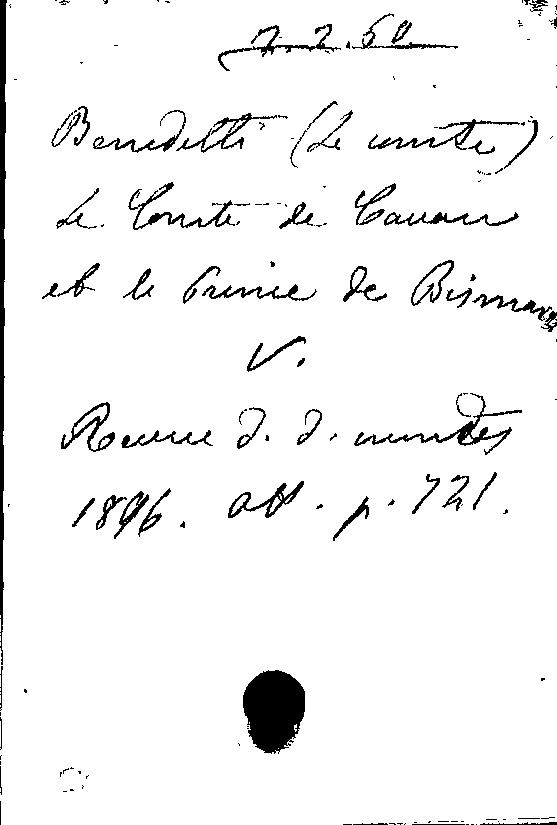 7.2.50
Benedetti (Le comte)
Le Comte de Cavour
et le Prince de Bismarck
V.
Revue d. d. mondes
1896. p. 721.